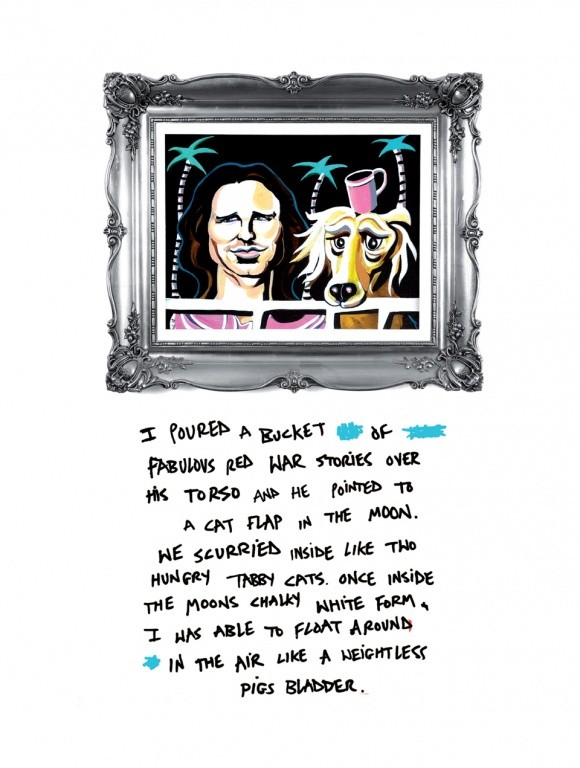 I POURED A BUCKET OF
FABULOUS RED WAR STORIES OVER
HIS TORSO AND HE POINTED TO
A CAT FLAP IN THE MOON.
WE SCURRIED INSIDE LIKE TWO
HUNGRY TABBY CATS. ONCE INSIDE
THE MOONS CHALKY WHITE FORM,
I WAS ABLE TO FLOAT AROUND
IN THE AIR LIKE A WEIGHTLESS
PIGS BLADDER.